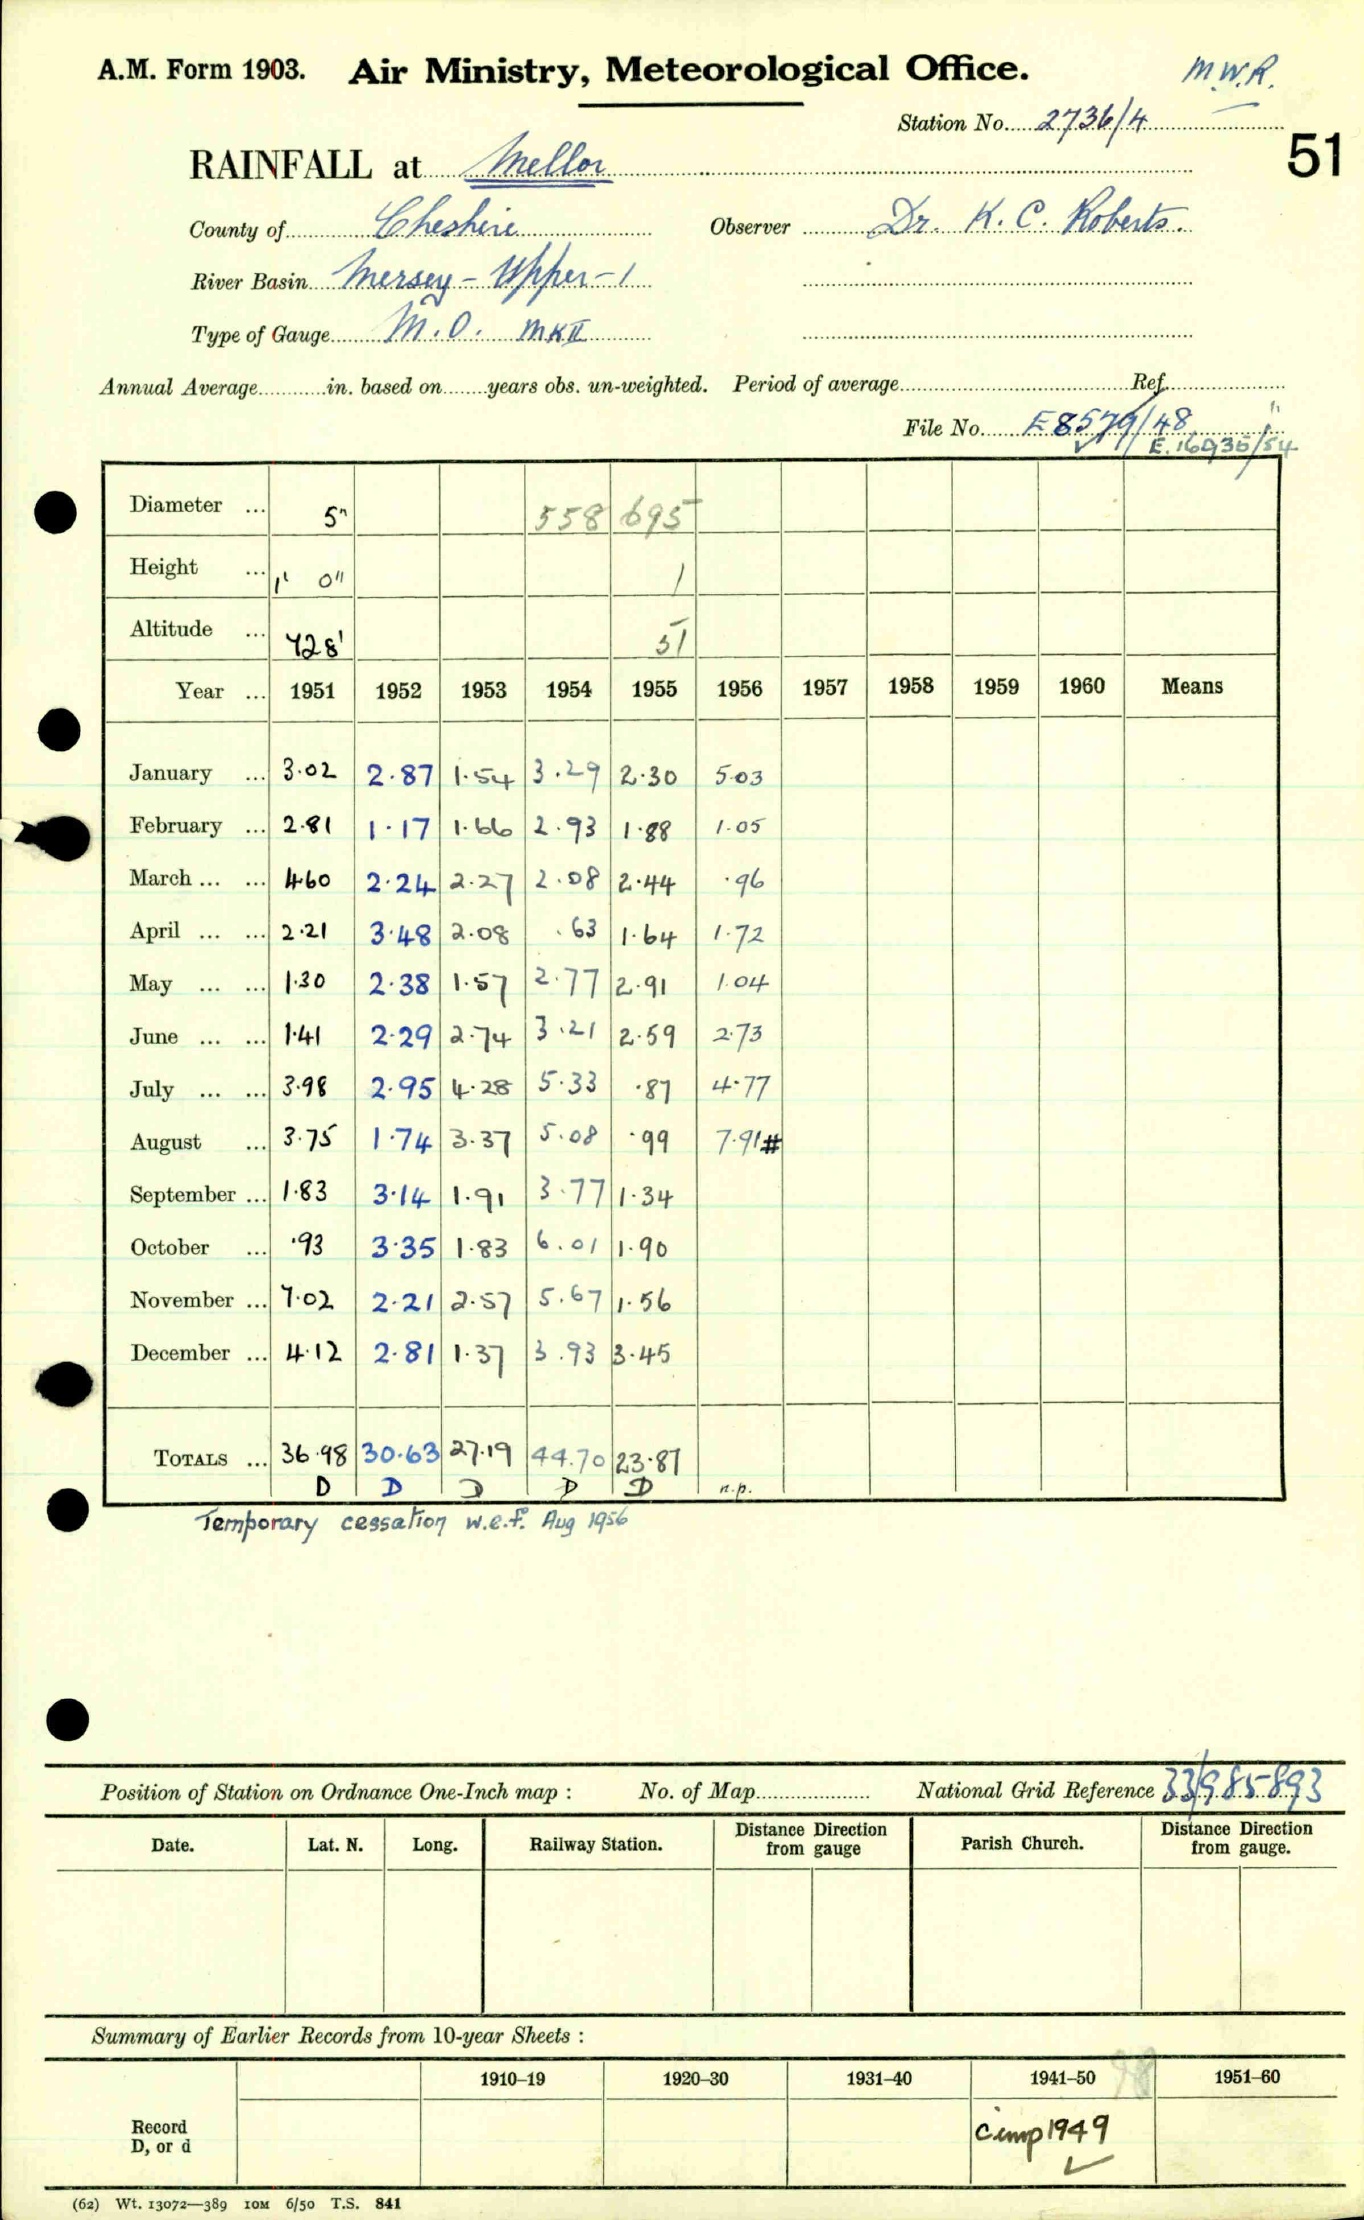 A.M. Form 1903. Air Ministry, Meteorological Office. M.W.R.
Station No. 2736/4
51
RAINFALL at Mellor
County of Cheshire Observer Dr. K. C. Roberts.
River Basin Mersey - Upper - 1
Type of Gauge M.O. MK II
Annual Average in. based on years obs. un-weighted. Period of average Ref.
File No. E8579/48
E.16935/54
Diameter ... 5" 558 695
Height ... 1' 0" 1
Altitude ... 728' 51
Year ... 1951 1952 1953 1954 1955 1956 1957 1958 1959 1960 Means
January ... 3.02 2.87 1.54 3.29 2.30 5.03
February ... 2.81 1.17 1.66 2.93 1.88 1.05
March ... ... 4.60 2.24 2.27 2.08 2.44 .96
April ... ... 2.21 3.48 2.08 .63 1.64 1.72
May ... ... 1.30 2.38 1.57 2.77 2.91 1.04
June ... ... 1.41 2.29 2.74 3.21 2.59 2.73
July ... ... 3.98 2.95 4.28 5.33 .87 4.77
August ... 3.75 1.74 3.37 5.08 .99 7.91#
September ... 1.83 3.14 1.91 3.77 1.34
October ... .93 3.35 1.83 6.01 1.90
November ... 7.02 2.21 2.57 5.67 1.56
December ... 4.12 2.81 1.37 3.93 3.45
TOTALS ... 36.98 30.63 27.19 44.70 23.87
D D D D D n.p.
Temporary cessation w.e.f. Aug 1956
Position of Station on Ordnance One-Inch map : No. of Map National Grid Reference 33/985893
Date. Lat. N. Long. Railway Station. Distance Direction from gauge Parish Church. Distance Direction from gauge.
Summary of Earlier Records from 10-year Sheets :
1910–19 1920–30 1931–40 1941–50 1951–60
Record
D, or d
Cimp 1949
(62) Wt. 13072—389 10M 6/50 T.S. 841